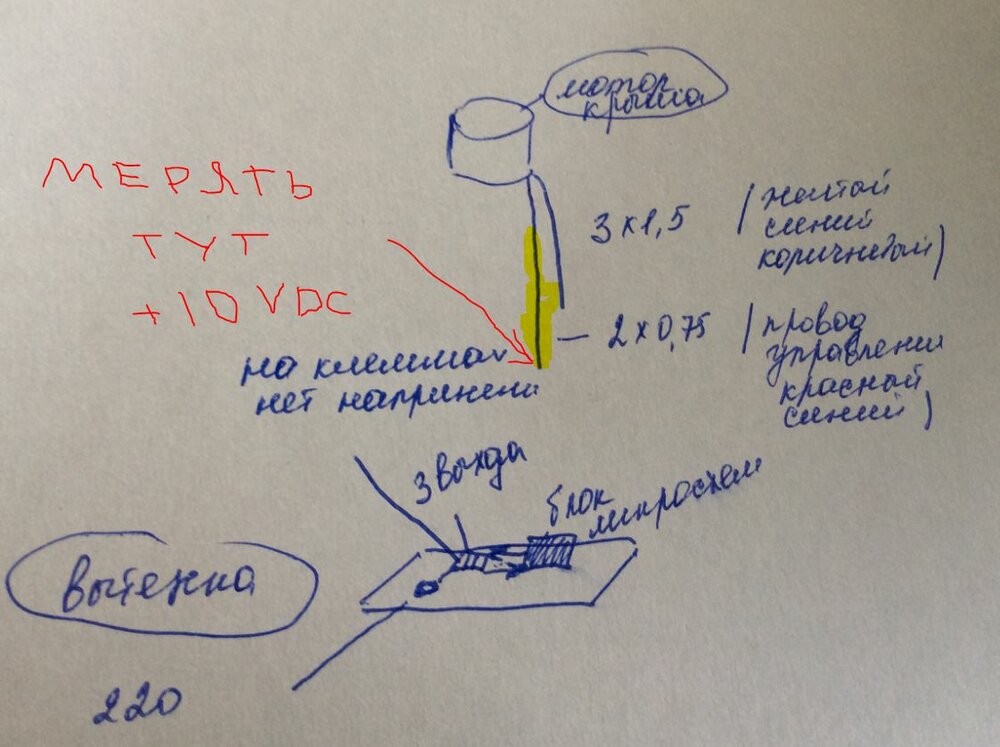 мотор
крыша
МЕРЯТЬ
ТУТ
+10 VDC
3 х 1,5 (желтый
синий
коричневый)
2 х 0,75 (провод
управления
красный
синий)
на клеммах
нет напряжени
3 выхода
блок
микросхем
Вытяжка
220